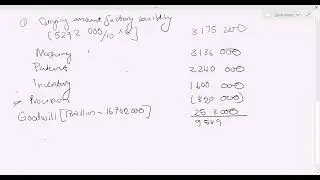 Carrying amount factory building 3 175 200
(5292 000/10 × 6)
Machinery 3136 000
Patent 2240 000
Inventory 1600 000
Provision (820 000)
Goodwill [17 million – 16742 000] 258 000
9 589